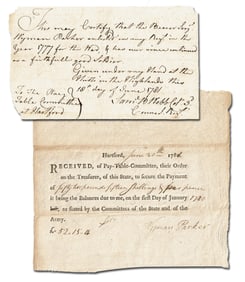 This may Certify that the Bearer
Hyman Parker enlisted in my Regt in the
Year 1777 for the War, & has ever continued
a faithfull good Soldier
Given under my Hand at the
Huts in the Highlands this
To the Pay 18th day of June 1781
Table Committee Saml B Webb Col 3d
at Hartford Connt Regt
Hartford, June 20th 178
RECEIVED, of Pay-Table-Committee, their Order
on the Treasurer, of this State, to secure the Payment
of fifty two pounds fifteen Shillings & four pence
being the Balance due to me, on the first Day of January 1781
as stated by the Committees of the State and of the
Army.
£ 52.15.4 Hyman Parker